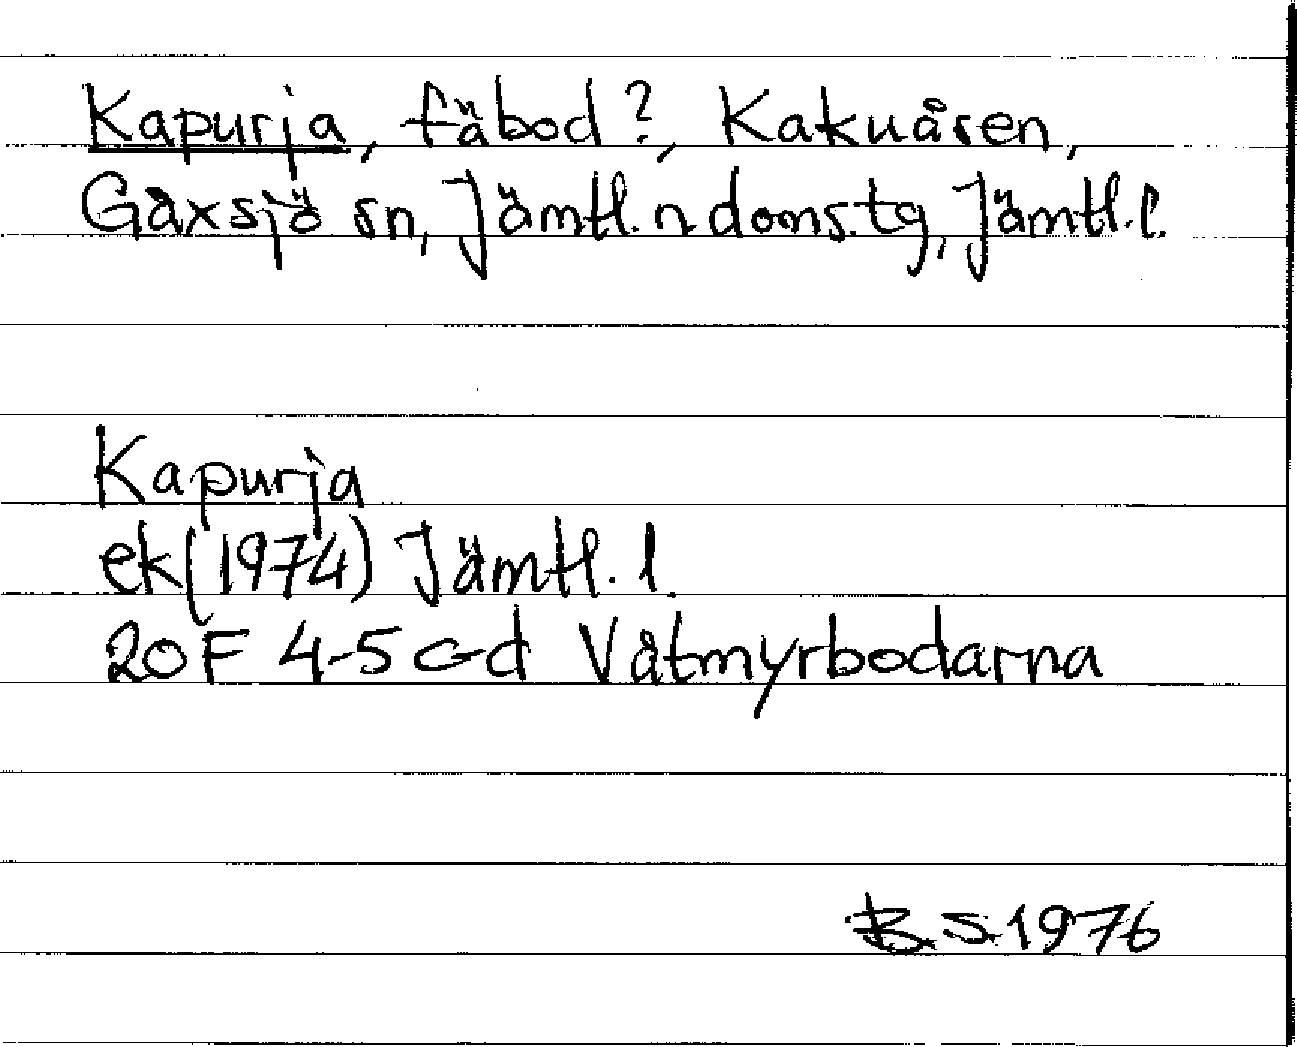 Kapurja, fäbod?, Kakuåsen,
Gåxsjö sn, Jämtl. n doms.tg, Jämtl.l.
Kapurja
ek (1974) Jämtl. l.
20F 4-5 c-d Våtmyrbodarna
B.S. 1976